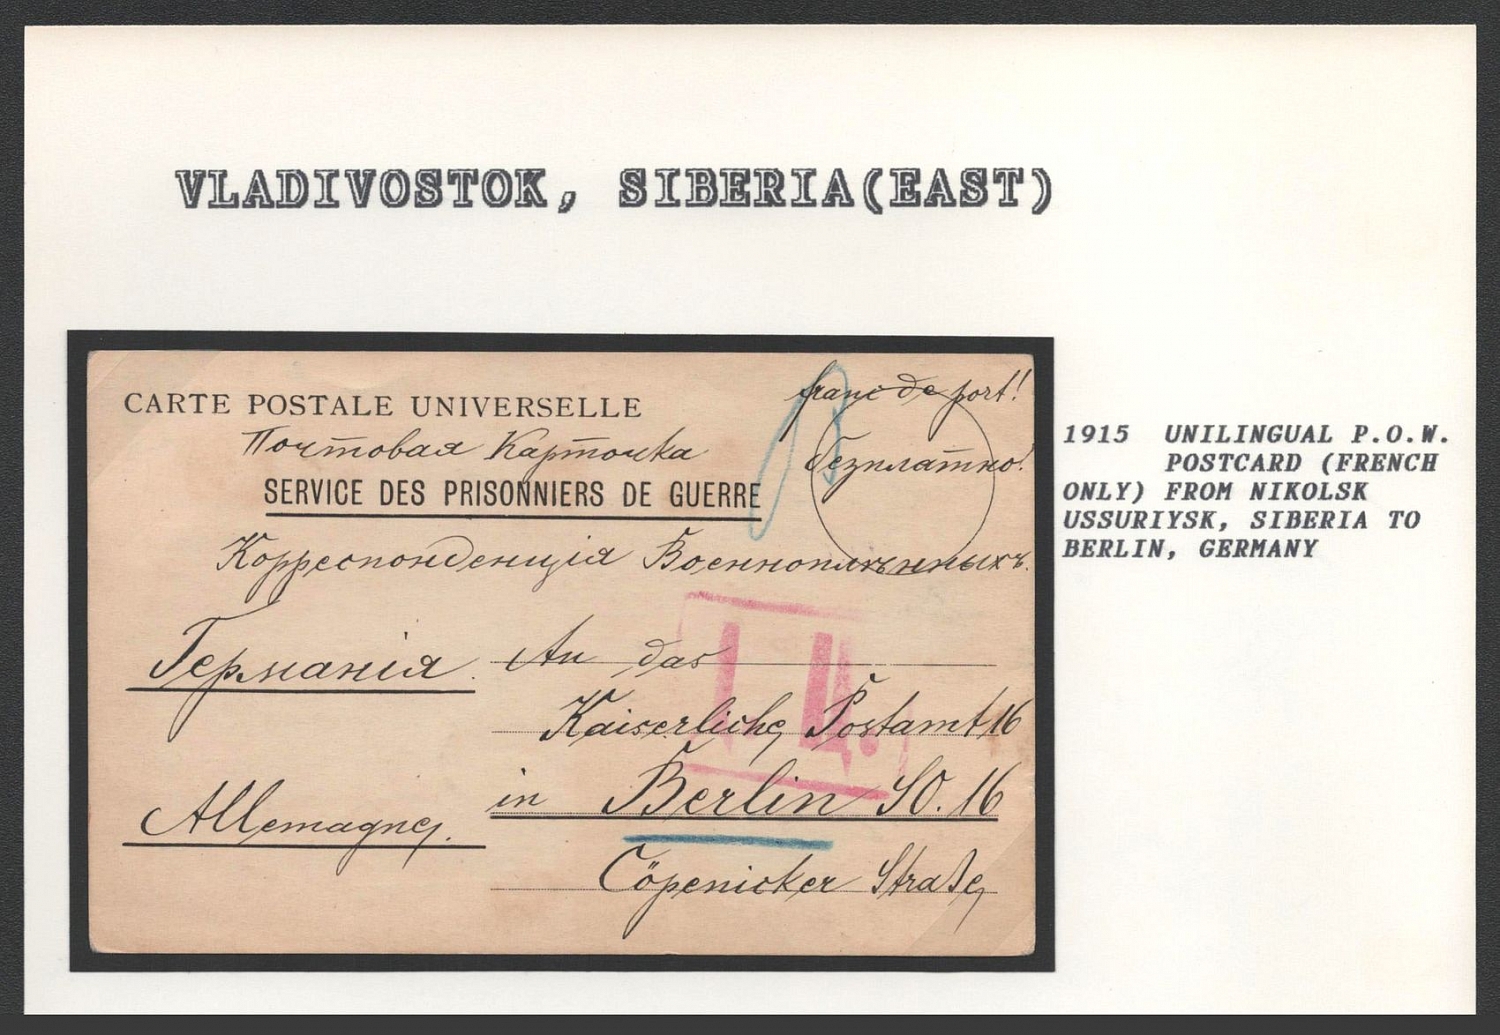 VLADIVOSTOK, SIBERIA(EAST)
CARTE POSTALE UNIVERSELLE
franc de port!
Почтовая Карточка
безплатно!
SERVICE DES PRISONNIERS DE GUERRE
Корреспонденція Военноплѣнныхъ.
Германія. An das
Kaiserliche Postamt 16
in Berlin SO. 16
Allemagne.
Cöpenicker Straße
1915 UNILINGUAL P.O.W.
POSTCARD (FRENCH
ONLY) FROM NIKOLSK
USSURIYSK, SIBERIA TO
BERLIN, GERMANY